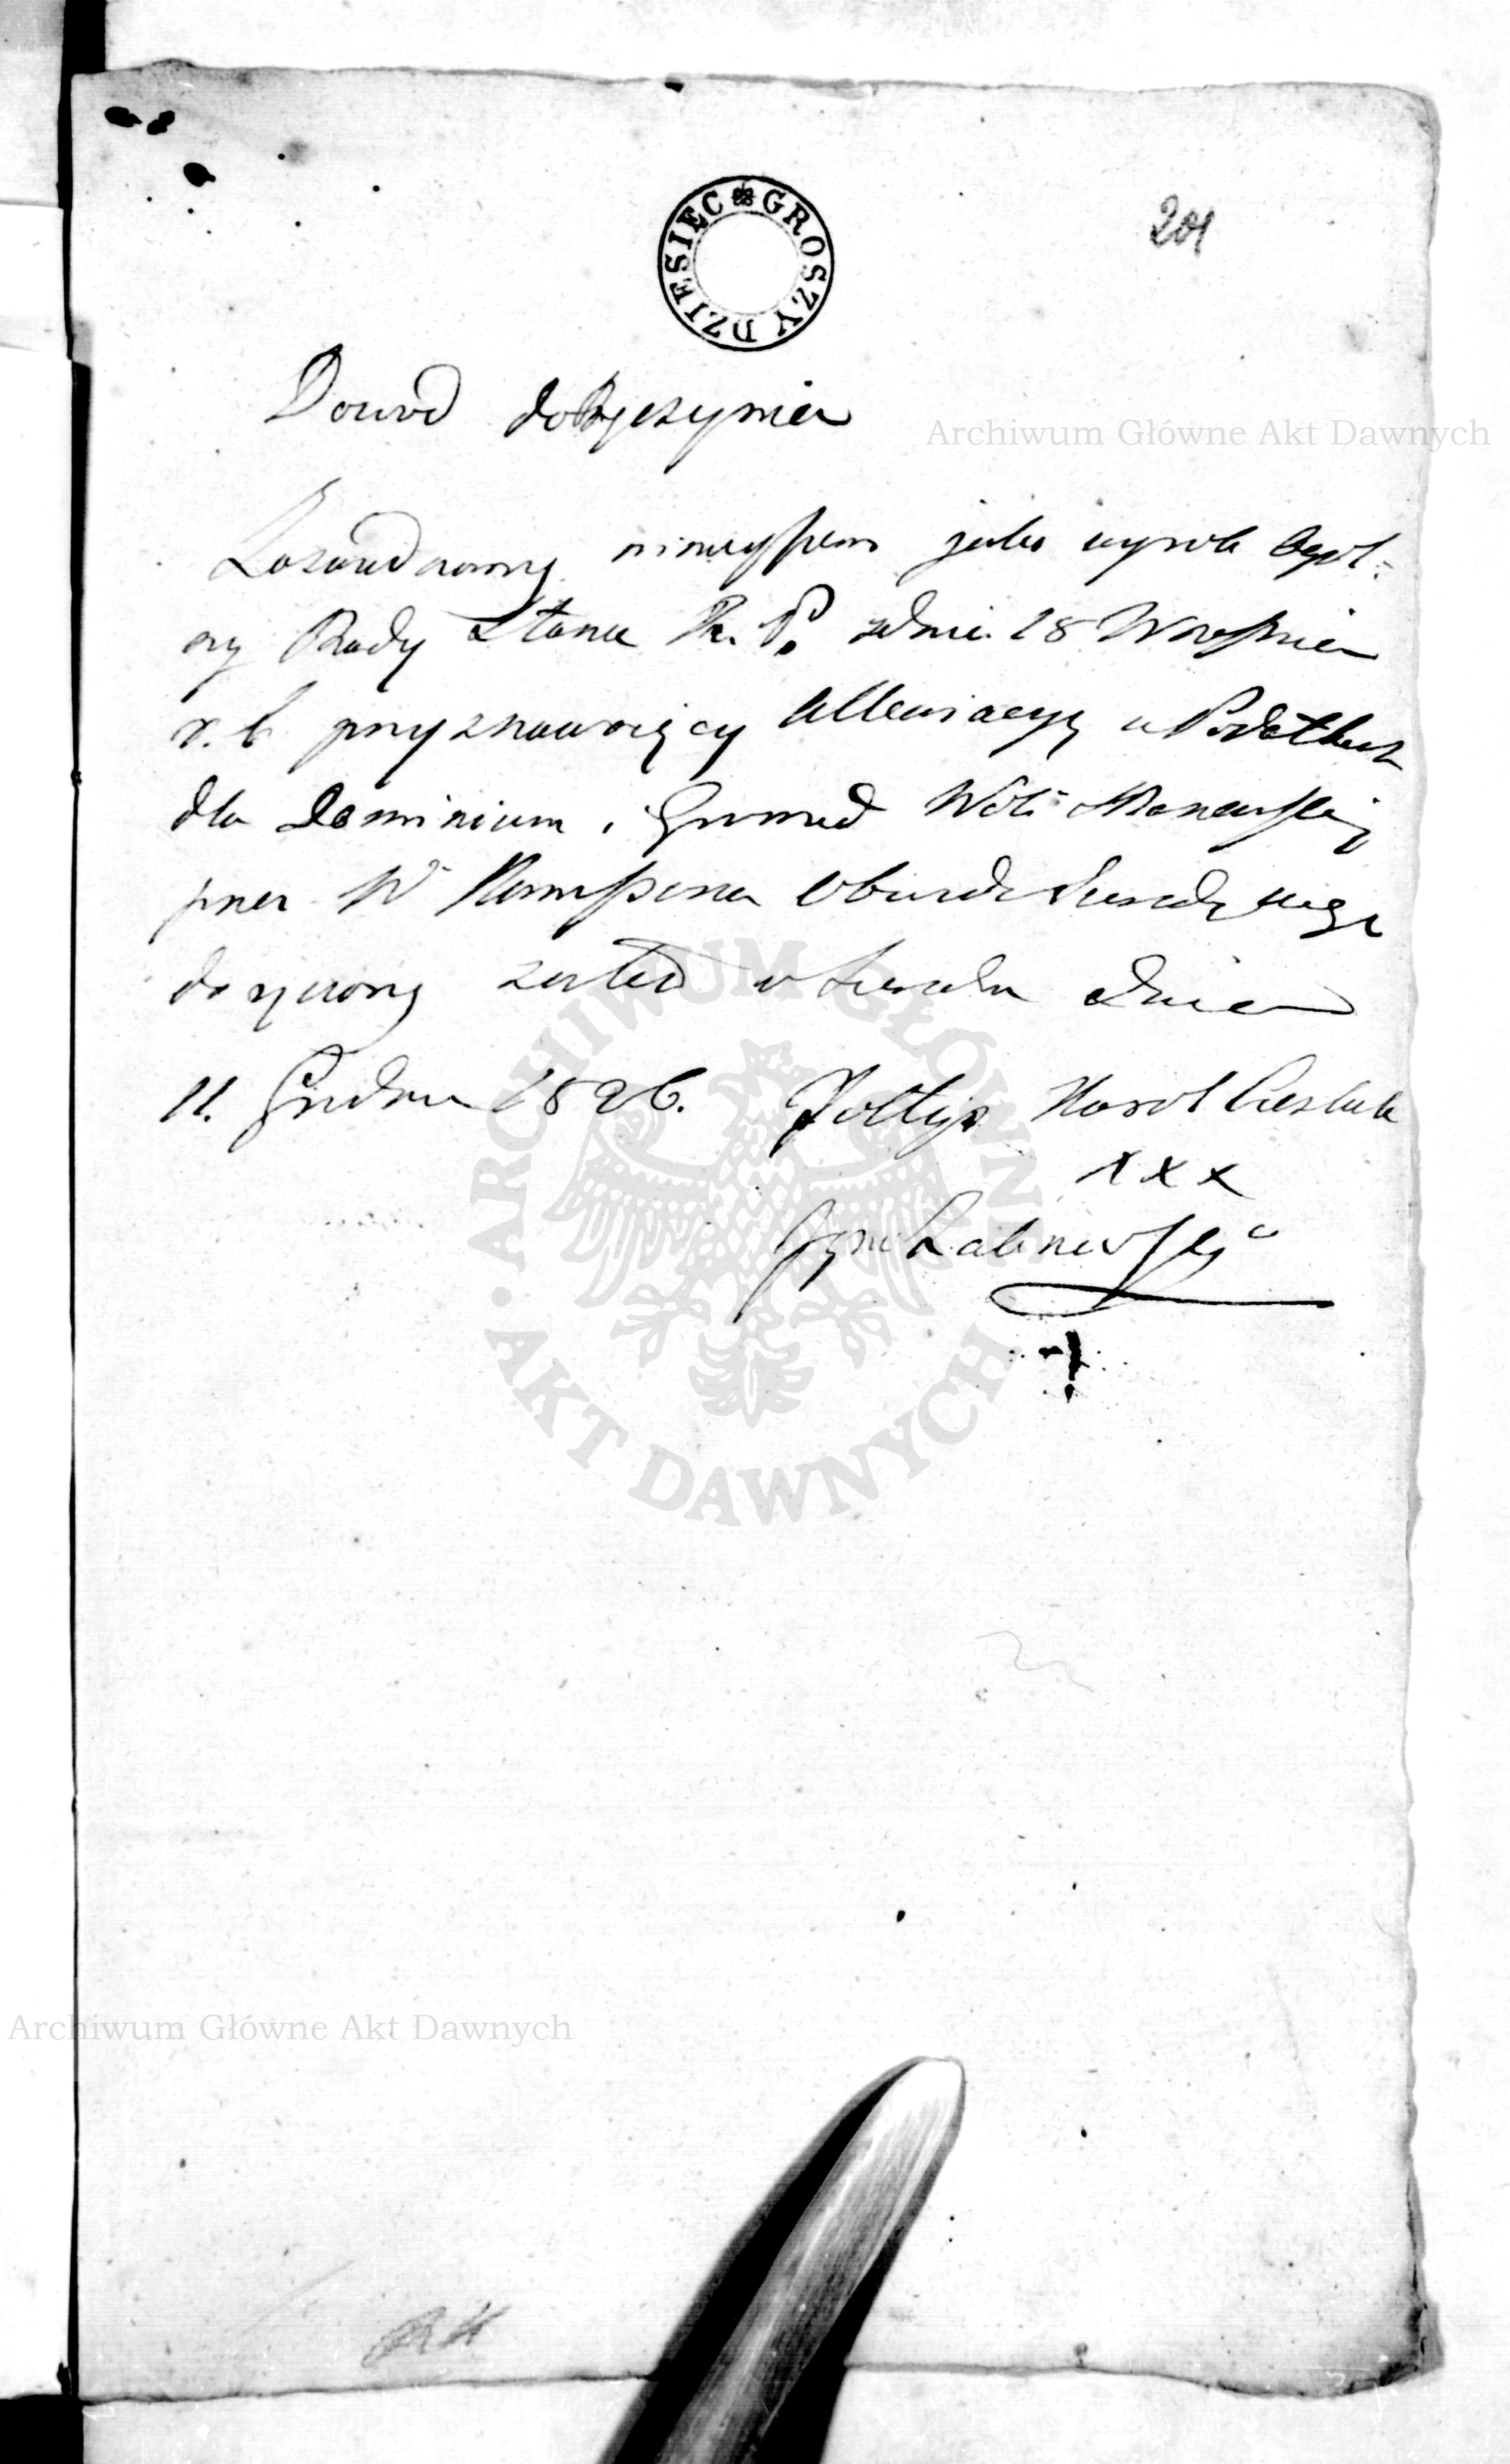 GROSZY DZIESIEC
201
Dowod doręczenia
Zaswiadczamy ninieyszem jako wyrok Ogól:
ny Rady Stanu K. P. zdnia 18 Września
r. b. przyznawaiący Allewiacyą w Podatkach
dla Dominium i Gromad Woli
przez W Kommissarza Obwodu Sieradzkiego
doręczony został w Sieradzu dnia
11. Grudnia 1826. Sołtys Karol Cieslak
xxx
Archiwum Główne Akt Dawnych
ARCHIWUM GŁÓWNE AKT DAWNYCH
Archiwum Główne Akt Dawnych